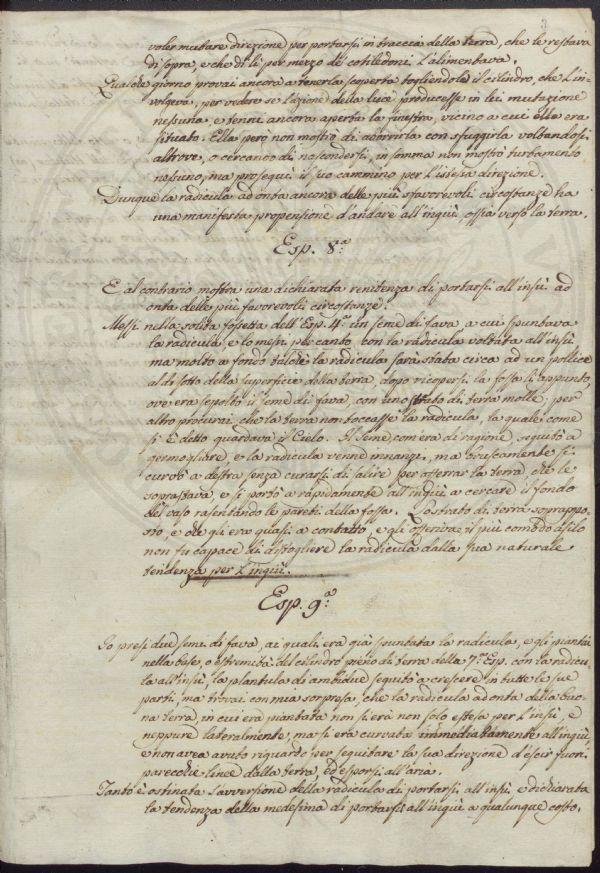 3
voler mutare direzione per portarsi in traccia della terra, che le restava
di sopra, e che di lì per mezzo de cotiledoni l'alimentava.
Qualche giorno provai ancora a tenerla scoperta togliendole il cilindro, che l'in-
volgeva, per vedere se l'azione della luce producesse in lei mutazione
nessuna, e tenni ancora aperta la finestra, vicino a cui ella era
situato. Ella però non mostrò di abborrirla con sfuggirla voltandosi
altrove, o cercando di nascondersi, in somma non mostrò turbamento
nessuno, ma proseguì il suo cammino per l'istessa direzione.
Dunque la radicula ad onta ancora delle più sfavorevoli circostanze ha
una manifesta propensione d'andare all'ingiù ossia verso la terra.
Esp. 8.a
E al contrario mostra una dichiarata renitenza di portarsi all'insù ad
onta delle più favorevoli circostanze.
Messi nella solita fossetta dell'Esp. 4.a un seme di fava, a cui spuntava
la radicula, e lo messi per canto, con la radicula voltata all'insù
ma molto a fondo talchè la radicula sarà stata circa ad un pollice
al di sotto della superficie della terra, dopo ricopersi la fossa sì appunto,
ove era sepolto il seme di fava, con uno strato di terra molle; per
altro procurai, che la terra non toccasse la radicula, la quale come
si è detto guardava il Cielo. Il seme com'era di ragione, seguitò a
germogliare e la radicula venne innanzi, ma bruscamente si
curvò a destra senza curarsi di salire per afferrar la terra che le
soprastava, e si portò a rapidamente all'ingiù a cercare il fondo
del vaso rasentando le pareti della fossa. Lo strato di terra soprappo-
sto, e che gli era quasi a contatto, e gli offeriva il più comodo asilo
non fu capace di distogliere la radicula dalla sua naturale
tendenza per l'ingiù.
Esp. 9.a
Io presi due semi di fava, ai quali era già spuntata la radicula, e gli piantai
nella base, o estremità del cilindro pieno di terra della 7.a Esp. con la radicu-
la all'insù, la plantula di ambidue seguitò a crescere in tutte le sue
parti, ma trovai con mia sorpresa, che la radicula ad onta della buo-
na terra, in cui era piantata non si era non solo estesa per l'insù, e
neppure lateralmente, ma si era curvata immediatamente all'ingiù,
e non avea avuto riguardo per seguitare la sua direzione d'escir fuori
parecchie linee dalla terra, ed esporsi all'aria.
Tanto è ostinata l'avversione della radicula di portarsi all'insù e dichiarata
la tendenza della medesima di portarsi all'ingiù a qualunque costo.